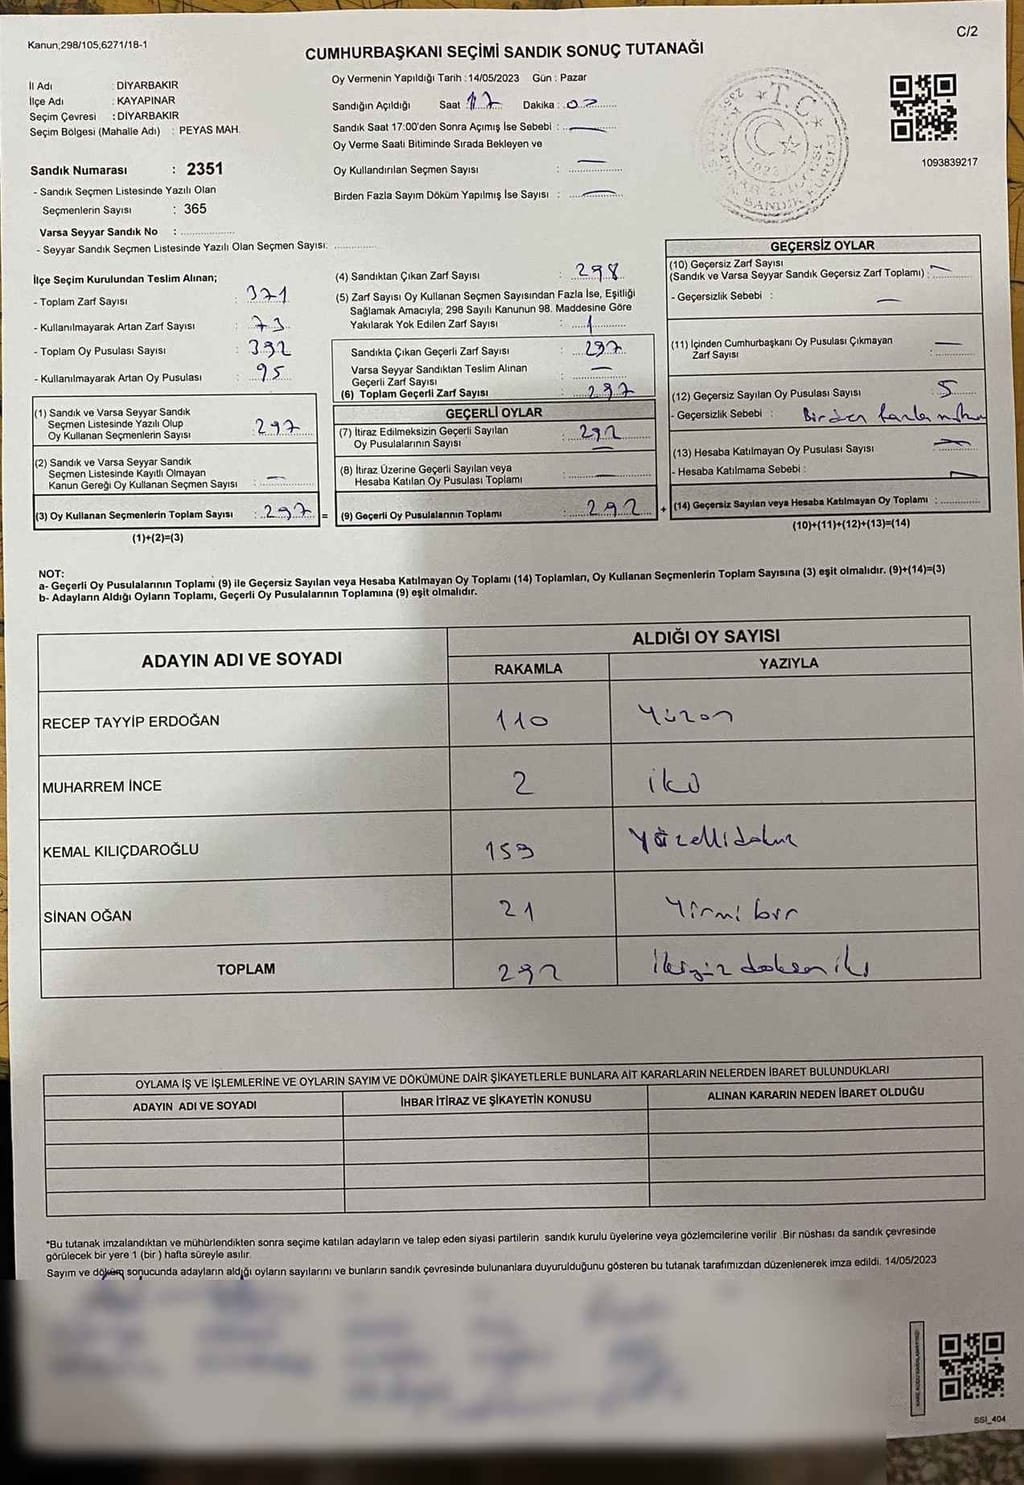 Kanun;298/105,6271/18-1
C/2
CUMHURBAŞKANI SEÇİMİ SANDIK SONUÇ TUTANAĞI
İl Adı : DİYARBAKIR
İlçe Adı : KAYAPINAR
Seçim Çevresi : DİYARBAKIR
Seçim Bölgesi (Mahalle Adı) : PEYAS MAH.
Sandık Numarası : 2351
- Sandık Seçmen Listesinde Yazılı Olan
Seçmenlerin Sayısı : 365
Varsa Seyyar Sandık No :
- Seyyar Sandık Seçmen Listesinde Yazılı Olan Seçmen Sayısı:
Oy Vermenin Yapıldığı Tarih : 14/05/2023 Gün : Pazar
Sandığın Açıldığı Saat : 17 Dakika : 02
Sandık Saat 17:00'den Sonra Açımış İse Sebebi : —
Oy Verme Saati Bitiminde Sırada Bekleyen ve
Oy Kullandırılan Seçmen Sayısı : —
Birden Fazla Sayım Döküm Yapılmış İse Sayısı : —
T.C.
SANDIK KURULU
1093839217
İlçe Seçim Kurulundan Teslim Alınan;
- Toplam Zarf Sayısı : 371
- Kullanılmayarak Artan Zarf Sayısı : 73
- Toplam Oy Pusulası Sayısı : 392
- Kullanılmayarak Artan Oy Pusulası : 95
(1) Sandık ve Varsa Seyyar Sandık
Seçmen Listesinde Yazılı Olup
Oy Kullanan Seçmenlerin Sayısı : 297
(2) Sandık ve Varsa Seyyar Sandık
Seçmen Listesinde Kayıtlı Olmayan
Kanun Gereği Oy Kullanan Seçmen Sayısı : —
(3) Oy Kullanan Seçmenlerin Toplam Sayısı : 297 =
(1)+(2)=(3)
(4) Sandıktan Çıkan Zarf Sayısı : 298
(5) Zarf Sayısı Oy Kullanan Seçmen Sayısından Fazla İse, Eşitliği
Sağlamak Amacıyla; 298 Sayılı Kanunun 98. Maddesine Göre
Yakılarak Yok Edilen Zarf Sayısı : 1
Sandıkta Çıkan Geçerli Zarf Sayısı : 297
Varsa Seyyar Sandıktan Teslim Alınan
Geçerli Zarf Sayısı : —
(6) Toplam Geçerli Zarf Sayısı : 297
GEÇERLİ OYLAR
(7) İtiraz Edilmeksizin Geçerli Sayılan
Oy Pusulalarının Sayısı : 292
(8) İtiraz Üzerine Geçerli Sayılan veya
Hesaba Katılan Oy Pusulası Toplamı : —
(9) Geçerli Oy Pusulalarının Toplamı : 292 +
GEÇERSİZ OYLAR
(10) Geçersiz Zarf Sayısı
(Sandık ve Varsa Seyyar Sandık Geçersiz Zarf Toplamı) : —
- Geçersizlik Sebebi : —
(11) İçinden Cumhurbaşkanı Oy Pusulası Çıkmayan
Zarf Sayısı : —
(12) Geçersiz Sayılan Oy Pusulası Sayısı : 5
- Geçersizlik Sebebi : Birden fazla mühür
(13) Hesaba Katılmayan Oy Pusulası Sayısı : —
- Hesaba Katılmama Sebebi : —
(14) Geçersiz Sayılan veya Hesaba Katılmayan Oy Toplamı :
(10)+(11)+(12)+(13)=(14)
NOT:
a- Geçerli Oy Pusulalarının Toplamı (9) ile Geçersiz Sayılan veya Hesaba Katılmayan Oy Toplamı (14) Toplamları, Oy Kullanan Seçmenlerin Toplam Sayısına (3) eşit olmalıdır. (9)+(14)=(3)
b- Adayların Aldığı Oyların Toplamı, Geçerli Oy Pusulalarının Toplamına (9) eşit olmalıdır.
ADAYIN ADI VE SOYADI
ALDIĞI OY SAYISI
RAKAMLA YAZIYLA
RECEP TAYYİP ERDOĞAN 110 Yüzon
MUHARREM İNCE 2 iki
KEMAL KILIÇDAROĞLU 159 Yüzellidokuz
SİNAN OĞAN 21 Yirmibir
TOPLAM 292 ikiyüzdoksaniki
OYLAMA İŞ VE İŞLEMLERİNE VE OYLARIN SAYIM VE DÖKÜMÜNE DAİR ŞİKAYETLERLE BUNLARA AİT KARARLARIN NELERDEN İBARET BULUNDUKLARI
ADAYIN ADI VE SOYADI İHBAR İTİRAZ VE ŞİKAYETİN KONUSU ALINAN KARARIN NEDEN İBARET OLDUĞU
*Bu tutanak imzalandıktan ve mühürlendikten sonra seçime katılan adayların ve talep eden siyasi partilerin sandık kurulu üyelerine veya gözlemcilerine verilir. Bir nüshası da sandık çevresinde
görülecek bir yere 1 (bir ) hafta süreyle asılır.
Sayım ve döküm sonucunda adayların aldığı oyların sayılarını ve bunların sandık çevresinde bulunanlara duyurulduğunu gösteren bu tutanak tarafımızdan düzenlenerek imza edildi. 14/05/2023
SSI_404